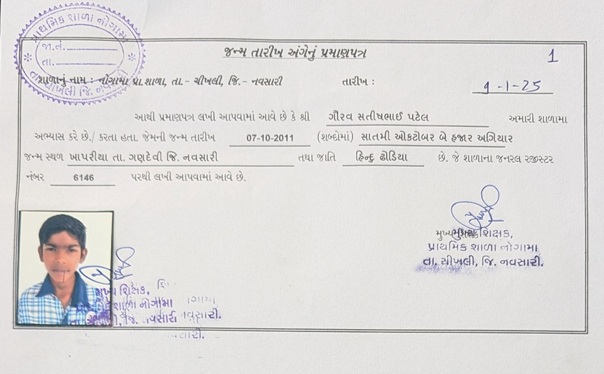 પ્રાથમિક શાળા નોગામા
જા.નં.
તા.
તા. ચીખલી જિ. નવસારી
જન્મ તારીખ અંગેનું પ્રમાણપત્ર
1
શાળાનું નામ : નોગામા પ્રા.શાળા, તા.- ચીખલી, જિ.- નવસારી તારીખ : 1-1-25
આથી પ્રમાણપત્ર લખી આપવામાં આવે છે કે શ્રી ગૌરવ સતીષભાઈ પટેલ અમારી શાળામા
અભ્યાસ કરે છે./ કરતા હતા. જેમની જન્મ તારીખ 07-10-2011 (શબ્દોમાં) સાતમી ઓક્ટોબર બે હજાર અગિયાર
જન્મ સ્થળ ખાપરીયા તા. ગણદેવી જિ. નવસારી તથા જાતિ હિન્દુ ઢોડિયા છે. જે શાળાના જનરલ રજીસ્ટર
નંબર 6146 પરથી લખી આપવામાં આવે છે.
મુખ્ય શિક્ષક,
પ્રાથમિક શાળા નોગામા
તા. ચીખલી, જિ. નવસારી.
મુખ્ય શિક્ષક,
શાળા નોગામા
જિ. નવસારી.
નવસારી.